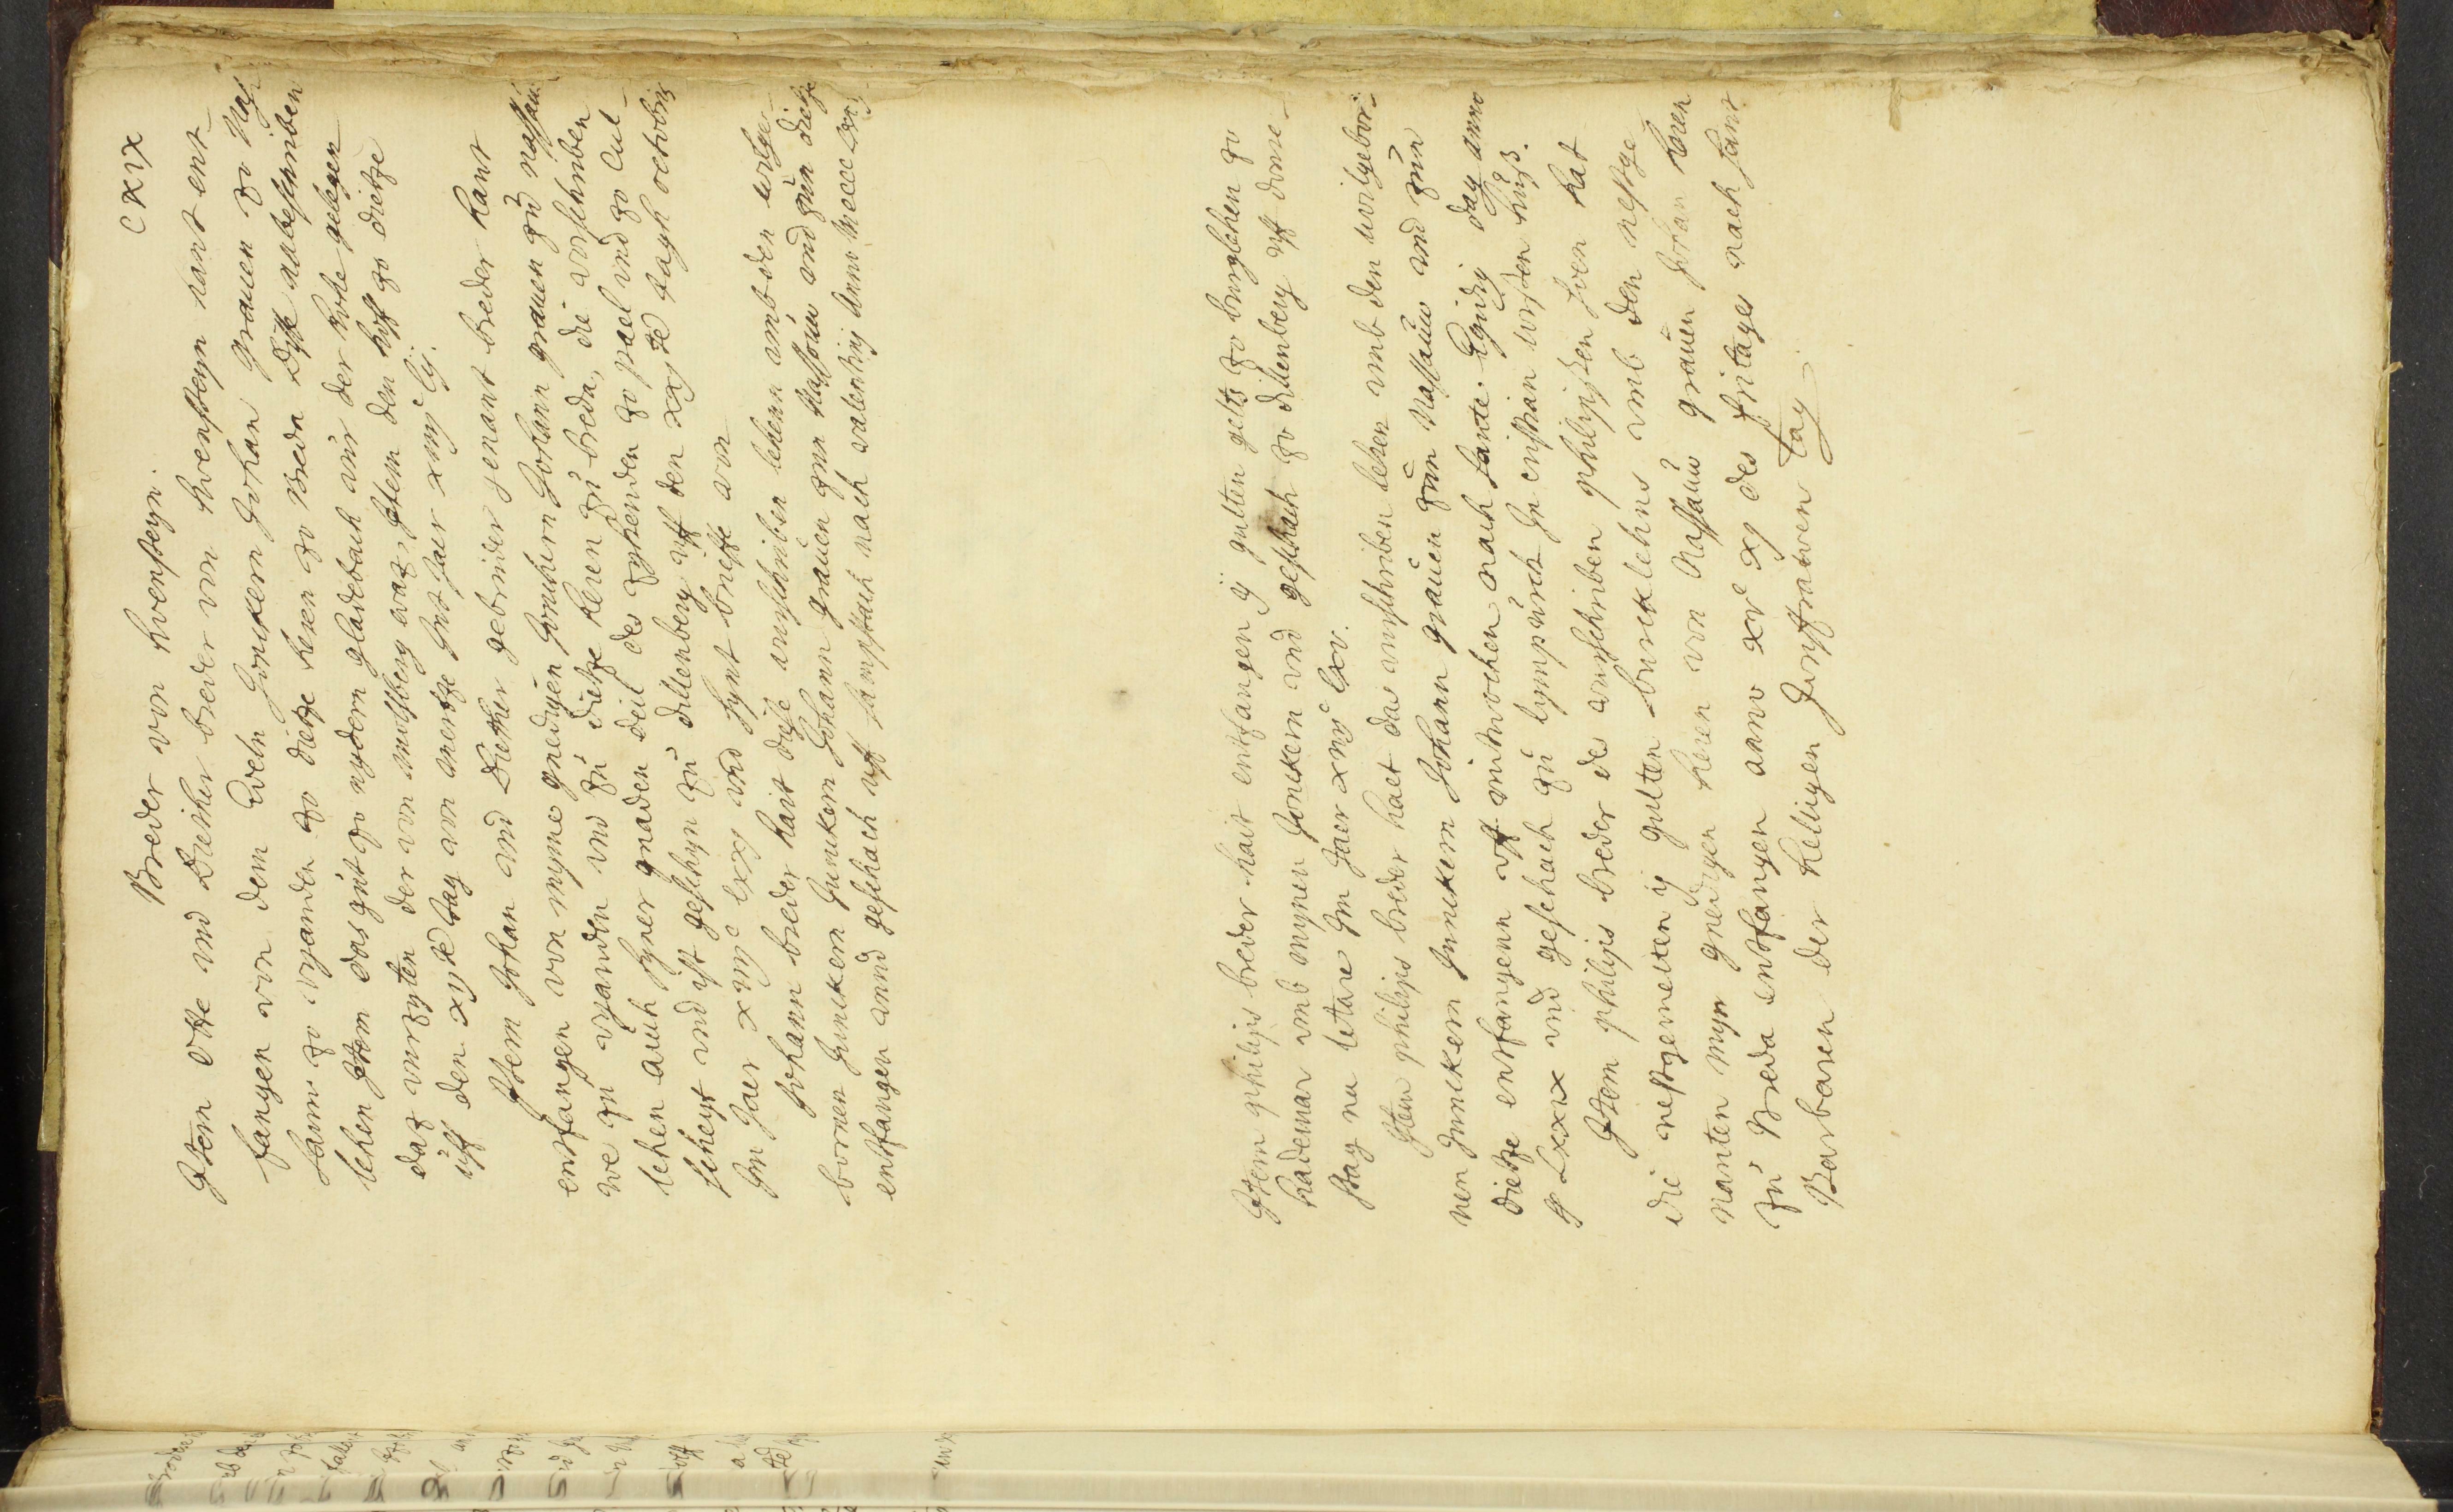 CXIX
Breder von Hoensteyn.
Item Otte und Diether breder von Hoensteyn hant ent-
fangen von dem Edeln Jonckern Johan grauen zo Nas-
sauw zo vyanden zo dietze heren zo Breda Dyse nabeschriben
lehen Item das gut zo nydern gladebach mit der hobe gelegen
daz vurzyten der von molsberg waz, Item den hoff zo dietze
uff den xijte tag von mertze Int Jaer xiiijc lij.
Item Johan und Diether gebruder genant breder hant
entfangen von myme gnedigen Jonchern Johann grauen zu nassau-
we zu vyanden und zu dietze heren zu breda, die vorschriben
lehen auch syner gnaden deil des zyhenden zo poel und zo Cul-
scheyt und ist geschyn zu dillenberg uff den xxjte tagh octobris
Im Jaer xiiijc lxxj und synt brieffe von
Johann breder hait diesse vurschriben lehenn umb den wolge-
bornen Junckern Junckern Johann grauen zcu Nassouw und zcu dietze
entfangen unnd geschach uff sampstach nach valentinij Anno Mcccc
Item philips breder hait entfangen ij gulten geltz zo burglehen zo
hademar umb mynen Jonckern und geschach zo dillenberg uff donre-
stag na letare Im Jaer xiiijc lxv.
Item philips breder haet das vurschriben lehen umb den wolgebor-
nen Junckern Junckern Johann grauen zcu Nassauw und zcu
dietze entfangenn uff mitwochen nach sante Egidij dag anno
lxxix und geschach zu lympurch In cristian huss.
Item philips breder des vurschriben philipssen soen hat
die nestgemelten ij gulten burcklehns umb den nestge-
nanten myn gnedigen heren von Nassauw grauen Johan heren
zu Breda entfangen anno xvc xj des fritages nach sant
Barbaren der heiligen Junffrauwen tag